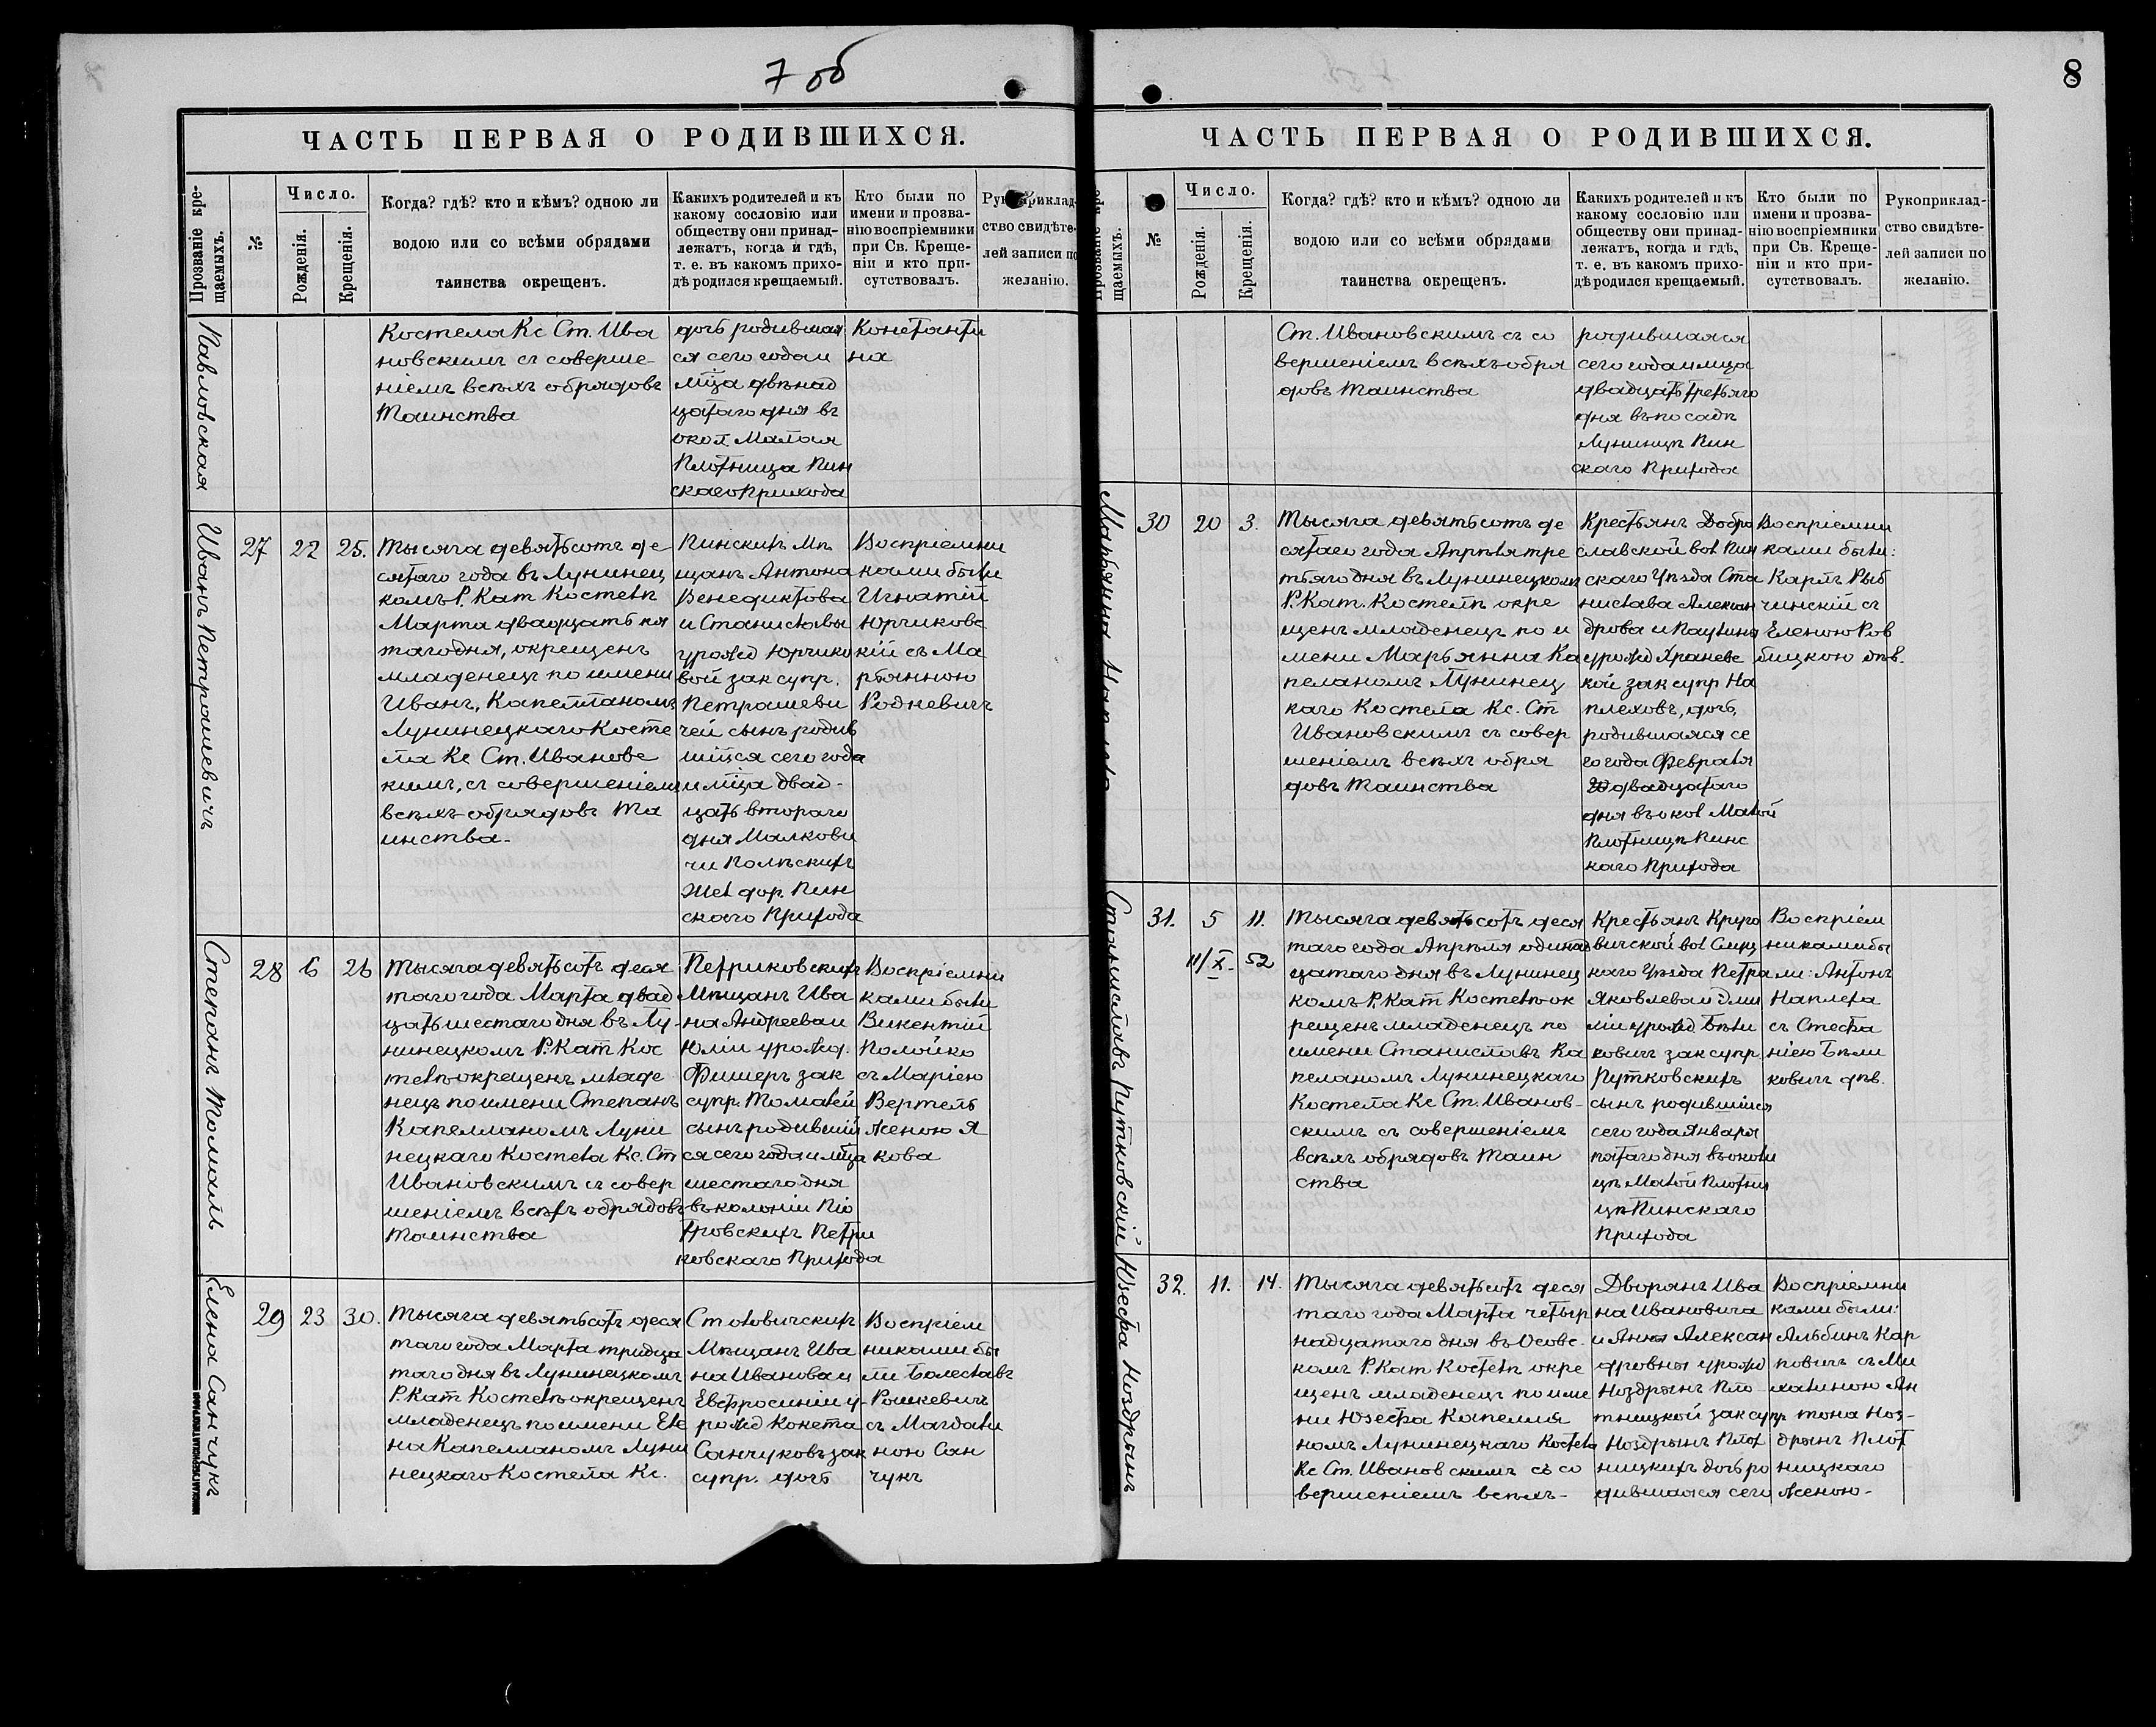 7 об
ЧАСТЬ ПЕРВАЯ О РОДИВШИХСЯ.
Прозваніе кре-
щаемыхъ.
№
Число.
Рожденія.
Крещенія.
Когда? гдѣ? кто и кѣмъ? одною ли
водою или со всѣми обрядами
таинства окрещенъ.
Какихъ родителей и къ
какому сословію или
обществу они принад-
лежатъ, когда и гдѣ,
т. е. въ какомъ прихо-
дѣ родился крещаемый.
Кто были по
имени и прозва-
нію воспріемники
при Св. Креще-
ніи и кто при-
сутствовалъ.
Рукоприклад-
ство свидѣте-
лей записи по
желанію.
Павловская
Костела Кс Ст. Ива
новскимъ съ соверше-
ніемъ всѣхъ обрядовъ
Таинства
дочь родившая
ся сего года и
мца двѣнад
цатаго дня въ
окол Малая
Плотница Пин
скаго Прихода
Константи
на
Иванъ Петрашевичъ
27
22
25.
Тысяча девятьсотъ де
сятаго года въ Лунинец
комъ Р. Кат Костелѣ
Марта двадцать пя
таго дня, окрещенъ
младенецъ по имени
Иванъ, Капелланомъ
Лунинецкаго Косте
ла Кс Ст. Ивановс
кимъ, съ совершеніемъ
всѣхъ обрядовъ Та
инства.
Пинскихъ Мѣ
щанъ Антона
Венедиктова
и Станиславы
урожд Юрчико
вой зак супр.
Петрашеви
чей сынъ родив
шійся сего года
и мца двад-
цать втораго
дня Малкови
чи Полѣскихъ
Жел дор. Пин
скаго Прихода
Воспріемни
ками были
Игнатій
Юрчиковс
кій съ Ма
рьянною
Родневичъ
Степанъ Томаль
28
6
26
Тысяча девятьсотъ деся
таго года Марта двад
цать шестаго дня въ Лу-
нинецкомъ Р. Кат Кос
телѣ окрещенъ младе
нецъ по имени Степанъ
Капелланомъ Луни
нецкаго Костела Кс. Ст
Ивановскимъ съ совер
шеніемъ всѣхъ обрядовъ
Таинства
Петриковскихъ
Мѣщанъ Ива
на Андреева и
Юліи урожд.
Фишеръ зак
супр. Томалей
сынъ родившій
ся сего года и мца
шестаго дня
въ колоніи Піо
тровскихъ Петри
ковскаго Прихода
Воспріемни
ками были
Викентій
Полойко
съ Маріею
Вертель
женою Я
кова
Елена Санчукъ
29
23
30.
Тысяча девятьсотъ деся
таго года Марта тридца
таго дня въ Лунинецкомъ
Р. Кат Костелѣ окрещенъ
младенецъ по имени Еле
на Капелланомъ Луни
нецкаго Костела Кс.
Столовичскихъ
Мѣщанъ Ива
на Иванова и
Евфросиніи у-
рожд Кокета
Санчуковъ зак
супр. дочь
Воспріем
никами бы
ли Болеславъ
Рошкевичъ
съ Магдали
ною Сан
чукъ
8
ЧАСТЬ ПЕРВАЯ О РОДИВШИХСЯ.
щаемыхъ.
№
Число.
Рожденія.
Крещенія.
Когда? гдѣ? кто и кѣмъ? одною ли
водою или со всѣми обрядами
таинства окрещенъ.
Какихъ родителей и къ
какому сословію или
обществу они принад-
лежатъ, когда и гдѣ,
т. е. въ какомъ прихо-
дѣ родился крещаемый.
Кто были по
имени и прозва-
нію воспріемники
при Св. Креще-
ніи и кто при-
сутствовалъ.
Рукоприклад-
ство свидѣте-
лей записи по
желанію.
Ст. Ивановскимъ съ со
вершеніемъ всѣхъ обря
довъ Таинства
родившаяся
сего года и мца
двадцать третьяго
дня въ посадѣ
Лунинцѣ Пин
скаго Прихода
Марьянна
30
20
3.
Тысяча девятьсотъ де
сятаго года Апрѣля тре
тьяго дня въ Лунинецкомъ
Р. Кат. Костелѣ окре
щенъ младенецъ по и
мени Марьянна Ка
пеланомъ Лунинец
каго Костела Кс. Ст
Ивановскимъ съ совер
шеніемъ всѣхъ обря
довъ Таинства
Крестьянъ Добро
славской вол Пин
скаго Уѣзда Ста
нислава Алексан
дрова и Паулины
урожд Храневс
кой зак супр На
плеховъ, дочь
родившаяся се
го года Февраля
двадцатаго
дня въ окол Малой
Плотницѣ Пинс
каго Прихода
Воспріемни
ками были:
Карлъ Рыб
чинскій съ
Еленою Ров
бицкою дѣв.
Станиславъ Путковскій
31.
5
11.
11/X-
52
Тысяча девятьсотъ деся
таго года Апрѣля одинад
цатаго дня въ Лунинец
комъ Р. Кат Костелѣ ок
рещенъ младенецъ по
имени Станиславъ Ка
пеланомъ Лунинецкаго
Костела Кс Ст. Иванов-
скимъ съ совершеніемъ
всѣхъ обрядовъ Таин
ства
Крестьянъ Круго
вичской вол Слуц
каго Уѣзда Петра
Яковлева и Эми
ліи урожд Бѣли
ковичъ зак супр
Путковскихъ
сынъ родившійся
сего года Января
пятаго дня въ околи
цѣ Малой Плотни
цѣ Пинскаго
Прихода
Воспріем
никами бы
ли: Антонъ
Наплеха
съ Стефа
ніею Бѣли
ковичъ дѣв.
Юзефа Ноздрынъ
32.
11.
14.
Тысяча девятьсотъ деся
таго года Марта четыр
надцатаго дня въ Осовс-
комъ Р. Кат Костелѣ окре
щенъ младенецъ по име
ни Юзефа Капелла
номъ Лунинецкаго Костела
Кс Ст. Ивановскимъ съ со
вершеніемъ всѣхъ-
Дворянъ Ива
на Ивановича
и Анны Алексан
дровны урожд
Ноздрынъ Пло-
тницкой зак супр
Ноздрынъ Плот
ницкихъ дочь ро
дившаяся сего
Воспріемни
ками были:
Альбинъ Кар
повичъ съ Ми
халиною Ан
тона Ноз-
дрынъ Плот
ницкаго
женою-